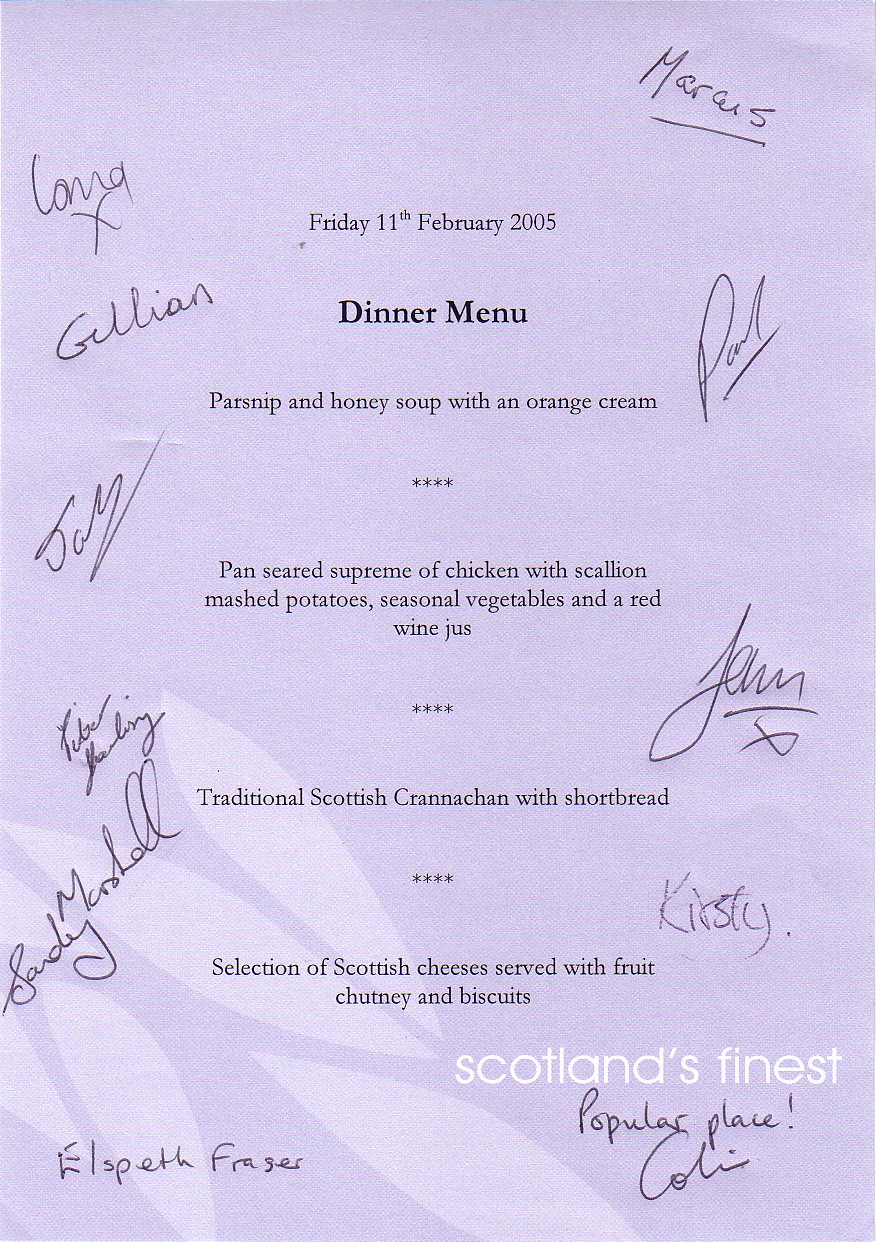 Marcus
Lorna
x
Friday 11th February 2005
Gillian
Dinner Menu
Paul
Parsnip and honey soup with an orange cream
****
Pan seared supreme of chicken with scallion
mashed potatoes, seasonal vegetables and a red
wine jus
****
x
Traditional Scottish Crannachan with shortbread
Sandy Marshall
****
Kirsty.
Selection of Scottish cheeses served with fruit
chutney and biscuits
scotland's finest
Popular place!
Colin
Elspeth Fraser